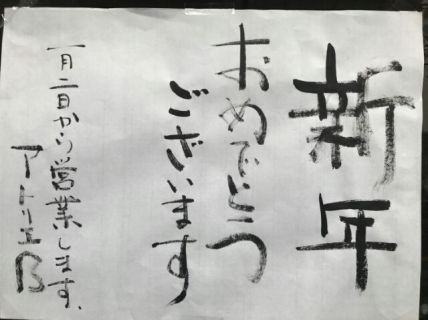 新年
おめでとう
ございます
一月二日から営業します.
アトリエB